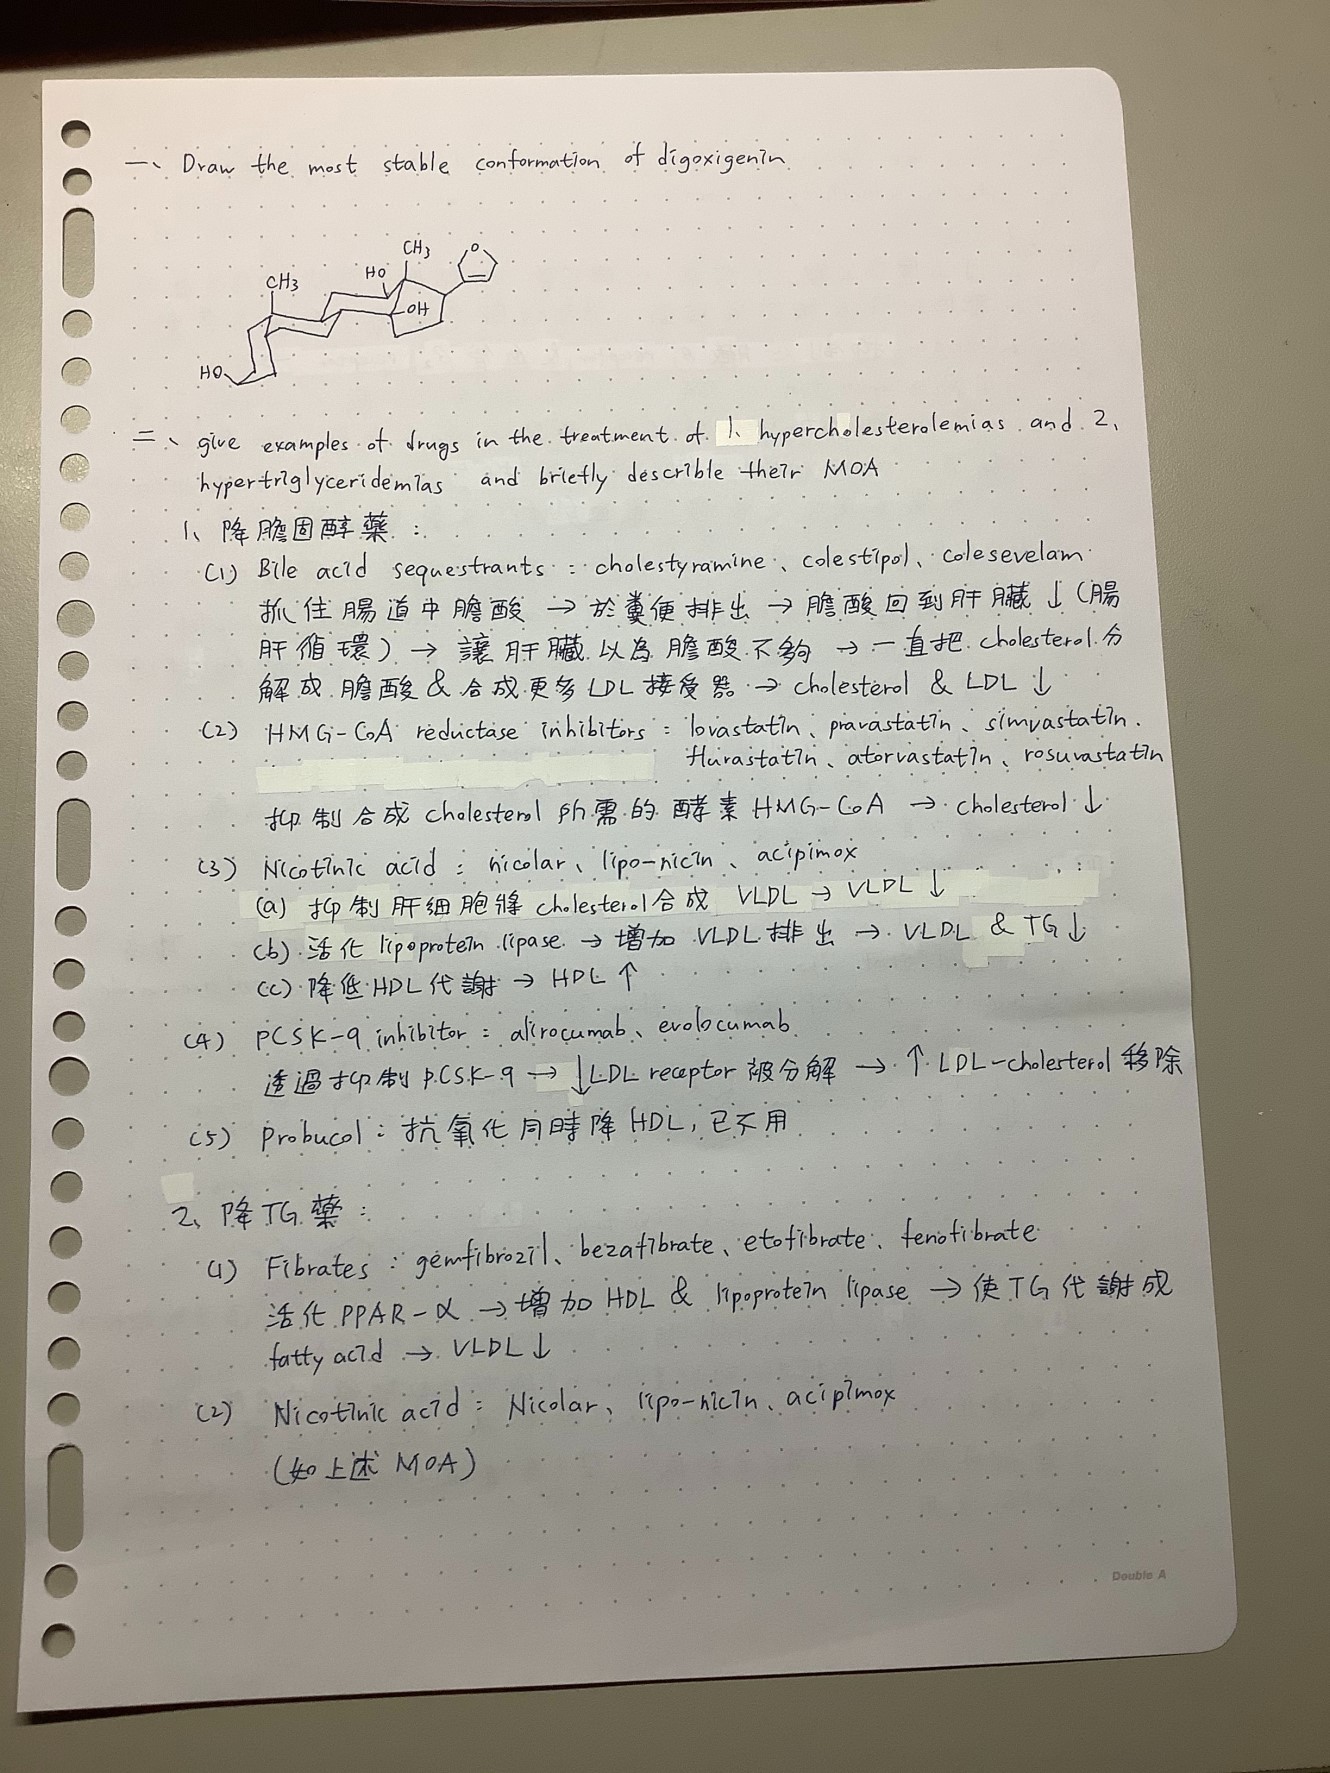 一、Draw the most stable conformation of digoxigenin
CH3
O
HO
CH3
OH
HO
二、give examples of drugs in the treatment of 1、hypercholesterolemias and 2、
hypertriglyceridemias and briefly describle their MOA
1、降膽固醇藥：
(1) Bile acid sequestrants：cholestyramine、colestipol、colesevelam
抓住腸道中膽酸 → 於糞便排出 → 膽酸回到肝臟↓（腸
肝循環）→ 讓肝臟以為膽酸不夠 → 一直把 cholesterol 分
解成膽酸 & 合成更多 LDL 接受器 → cholesterol & LDL ↓
(2) HMG-CoA reductase inhibitors：lovastatin、pravastatin、simvastatin、
fluvastatin、atorvastatin、rosuvastatin
抑制合成 cholesterol 所需的酵素 HMG-CoA → cholesterol ↓
(3) Nicotinic acid：nicolar、lipo-nicin、acipimox
(a) 抑制肝細胞將 cholesterol 合成 VLDL → VLDL ↓
(b) 活化 lipoprotein lipase → 增加 VLDL 排出 → VLDL & TG ↓
(c) 降低 HDL 代謝 → HDL ↑
(4) PCSK-9 inhibitor：alirocumab、evolocumab
透過抑制 PCSK-9 → ↓LDL receptor 被分解 → ↑ LDL-cholesterol 移除
(5) Probucol：抗氧化同時降 HDL，已不用
2、降 TG 藥：
(1) Fibrates：gemfibrozil、bezafibrate、etofibrate、fenofibrate
活化 PPAR-α → 增加 HDL & lipoprotein lipase → 使 TG 代謝成
fatty acid → VLDL ↓
(2) Nicotinic acid：Nicolar、lipo-nicin、acipimox
（如上述 MOA）
Double A